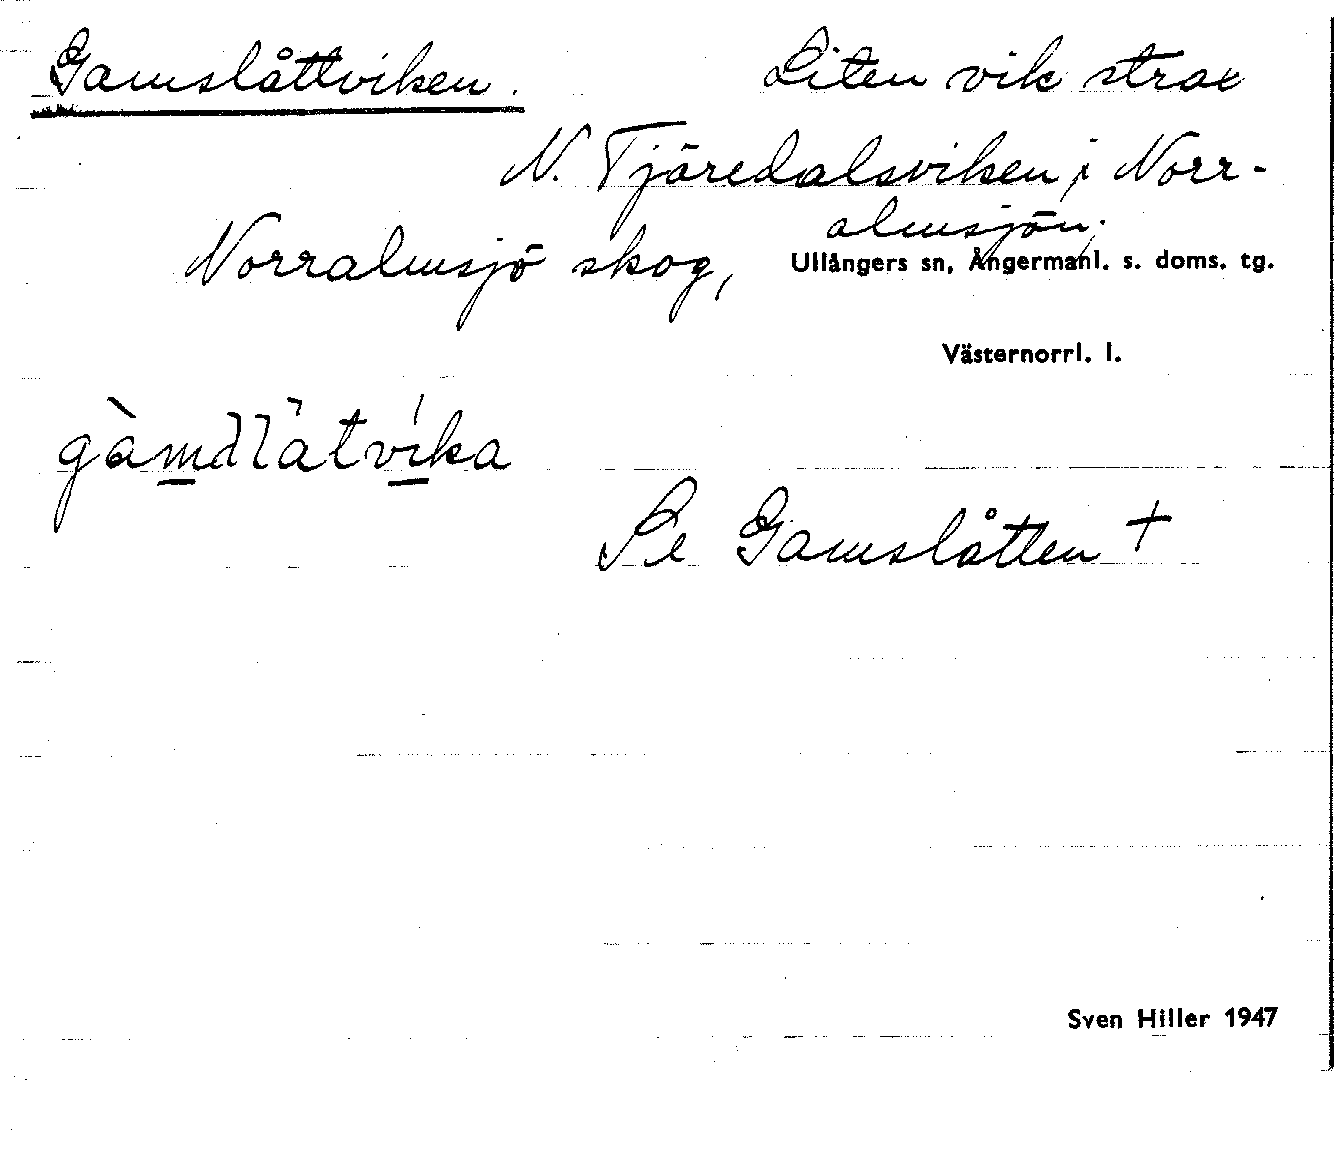 Gamslåttviken.
Liten vik strax
N. Tjäredalsviken i Norr-
almsjön;
Norralmsjö skog,
Ullångers sn, Ångermanl. s. doms. tg.
Västernorrl. l.
Se Gamslåtten +
Sven Hiller 1947